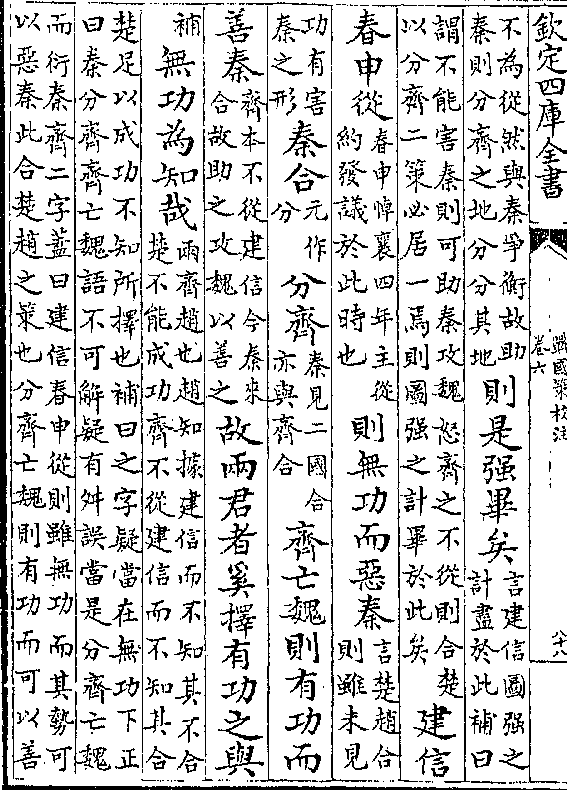 欽定四庫全書
戰國策校注
卷六
不為從然與秦爭衡故助
秦則分齊之地分分其地
則是强畢矣
言建信圖强之
計盡於此補曰
謂不能害秦則可助秦攻魏怒齊之不從則合楚
以分齊二策必居一焉則圖强之計畢於此矣
建信
春申從
春申悼襄四年主從
約發議於此時也
則無功而惡秦
言楚趙合
則雖未見
功有害
秦之形
秦合
元作
分
分齊
秦見二國合
亦與齊合
齊亡魏則有功而
善秦
齊本不從建信今秦來
合故助之攻魏以善之
故兩君者奚擇有功之與
補
無功為知哉
兩齊趙也趙知據建信而不知其不合
楚不能成功齊不從建信而不知其合
楚足以成功不知所擇也補曰之字疑當在無功下正
曰秦分齊齊亡魏語不可解疑有舛誤當是分齊亡魏
而衍秦齊二字葢曰建信春申從則雖無功而其勢可
以惡秦此合楚趙之策也分齊亡魏則有功而可以善